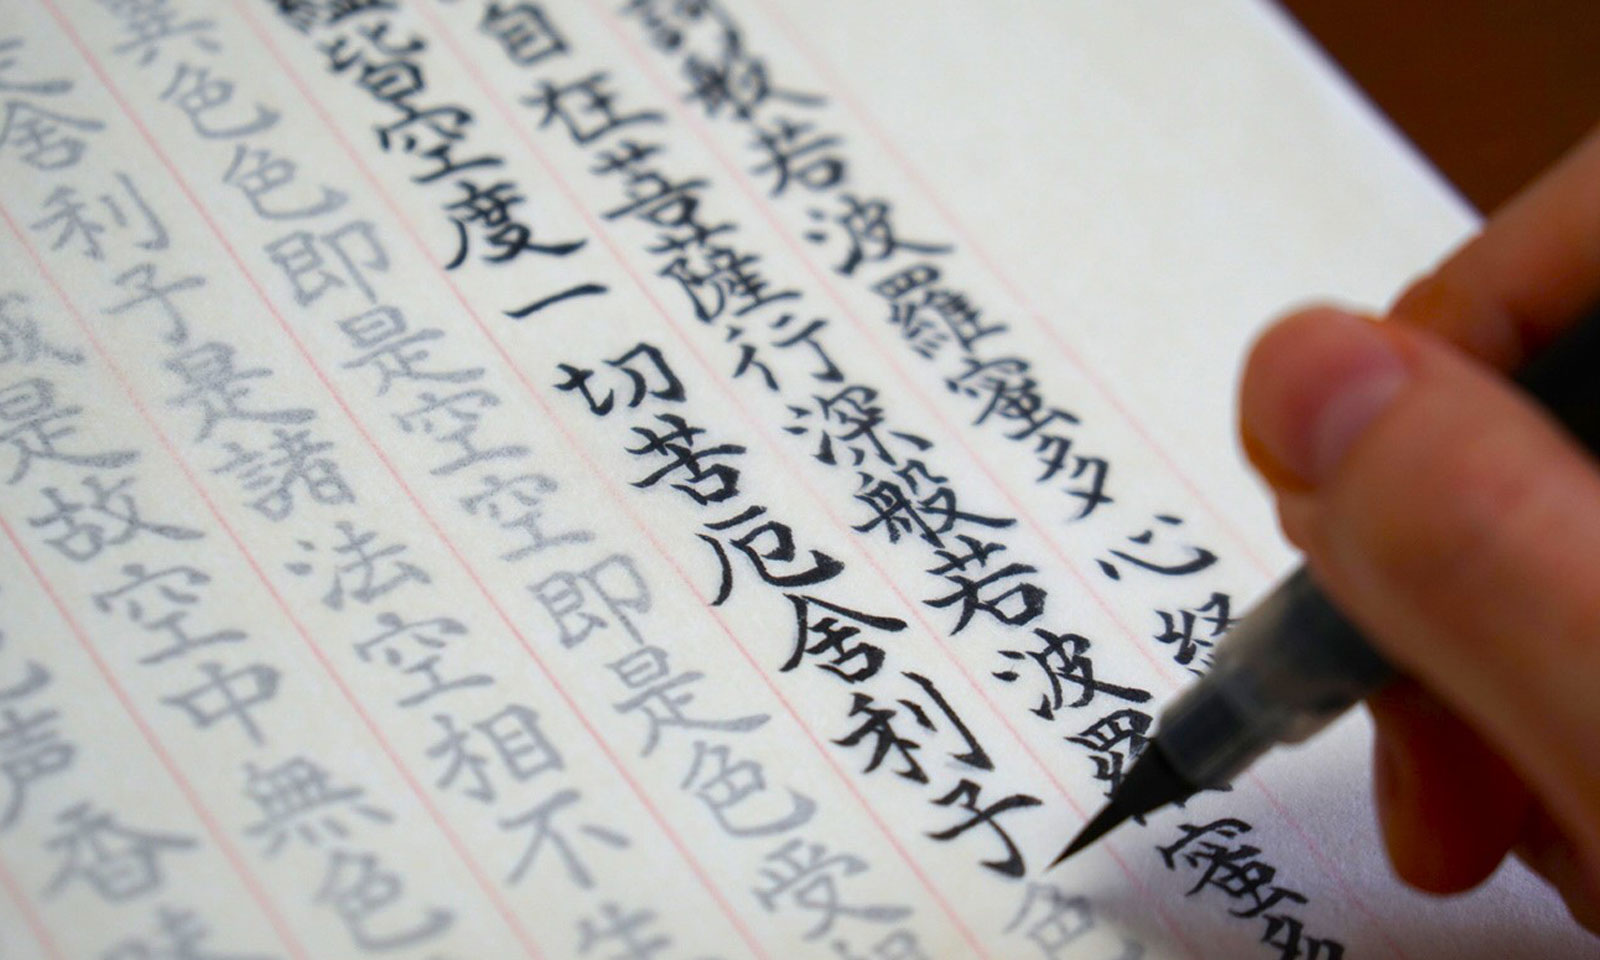 訶般若波羅蜜多心経
自在菩薩行深般若波羅蜜多
皆空度一切苦厄舍利子色
異色色即是空空即是色受想
舍利子是諸法空相不生
是故空中無色
声香味